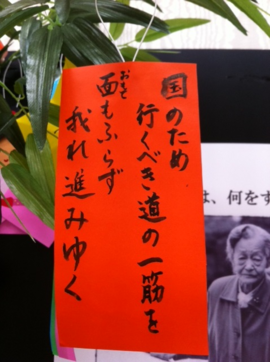 国のため
行くべき道の一筋を
面もふらず
おもて
我れ進みゆく
は、何をす